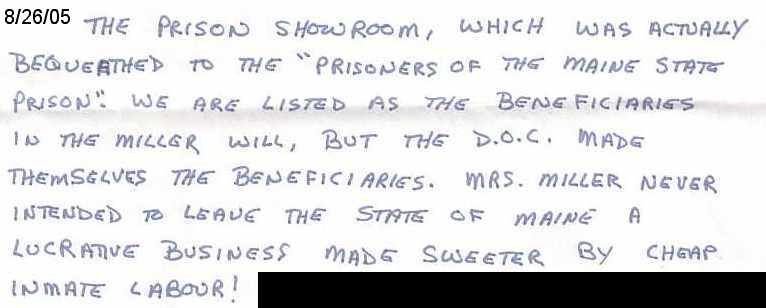 8/26/05
THE PRISON SHOWROOM, WHICH WAS ACTUALLY
BEQUEATHED TO THE "PRISONERS OF THE MAINE STATE
PRISON". WE ARE LISTED AS THE BENEFICIARIES
IN THE MILLER WILL, BUT THE D.O.C. MADE
THEMSELVES THE BENEFICIARIES. MRS. MILLER NEVER
INTENDED TO LEAVE THE STATE OF MAINE A
LUCRATIVE BUSINESS MADE SWEETER BY CHEAP
INMATE LABOUR!